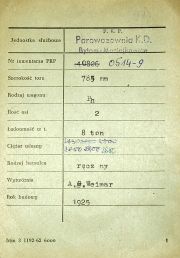 P. K. P.
Jednostka służbowa
Parowozownia K.D.
Nr inwentarza PKP 0514-9
Szerokość toru 785 mm
Rodzaj wagonu Ph
Ilość osi 2
Ładowność w t. 8 ton
Ciężar własny
Rodzaj hamulca ręczny
Wytwórnia A.G. Weimar
Rok budowy 1925
1